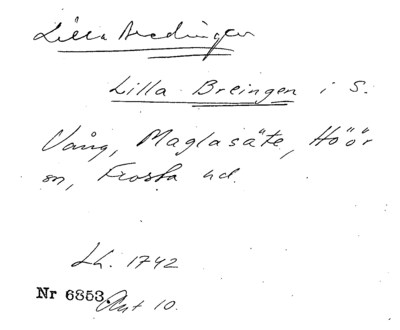 Lilla Bredingen
Lilla Breingen i S.
Vång, Maglasäte, Höör
sn, Frosta hd.
Lh. 1742
Nr 6853. Akt 10.